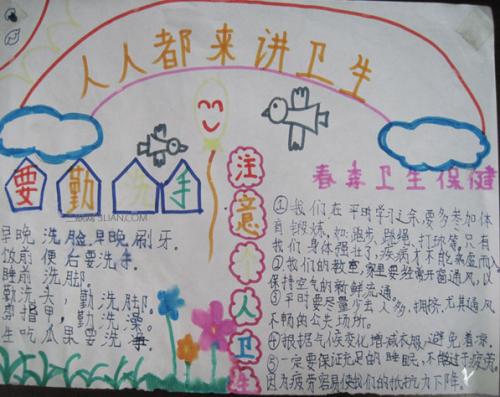 人人都来讲卫生
要勤洗手
注意个人卫生
春季卫生保健
早晚洗脸,早晚刷牙.
饭前便后要洗手.
睡前洗脚.
勤洗头,勤洗脚.
剪指甲,勤洗澡.
生吃瓜果要洗净.
①我们在平时学习之余,要多参加体
育锻炼,如:跑步、跳绳、打球等.只有
我们身体强壮了,疾病才不能乘虚而入
②我们的教室,家里要经常开窗通风,以
保持空气的新鲜流通.
③平时要尽量少去人多,拥挤,尤其通风
不畅的公共场所.
④根据气候变化增减衣服,避免着凉.
⑤一定要保证充足的睡眠,不能过于疲劳.
因为疲劳容易使我们的抵抗力下降.